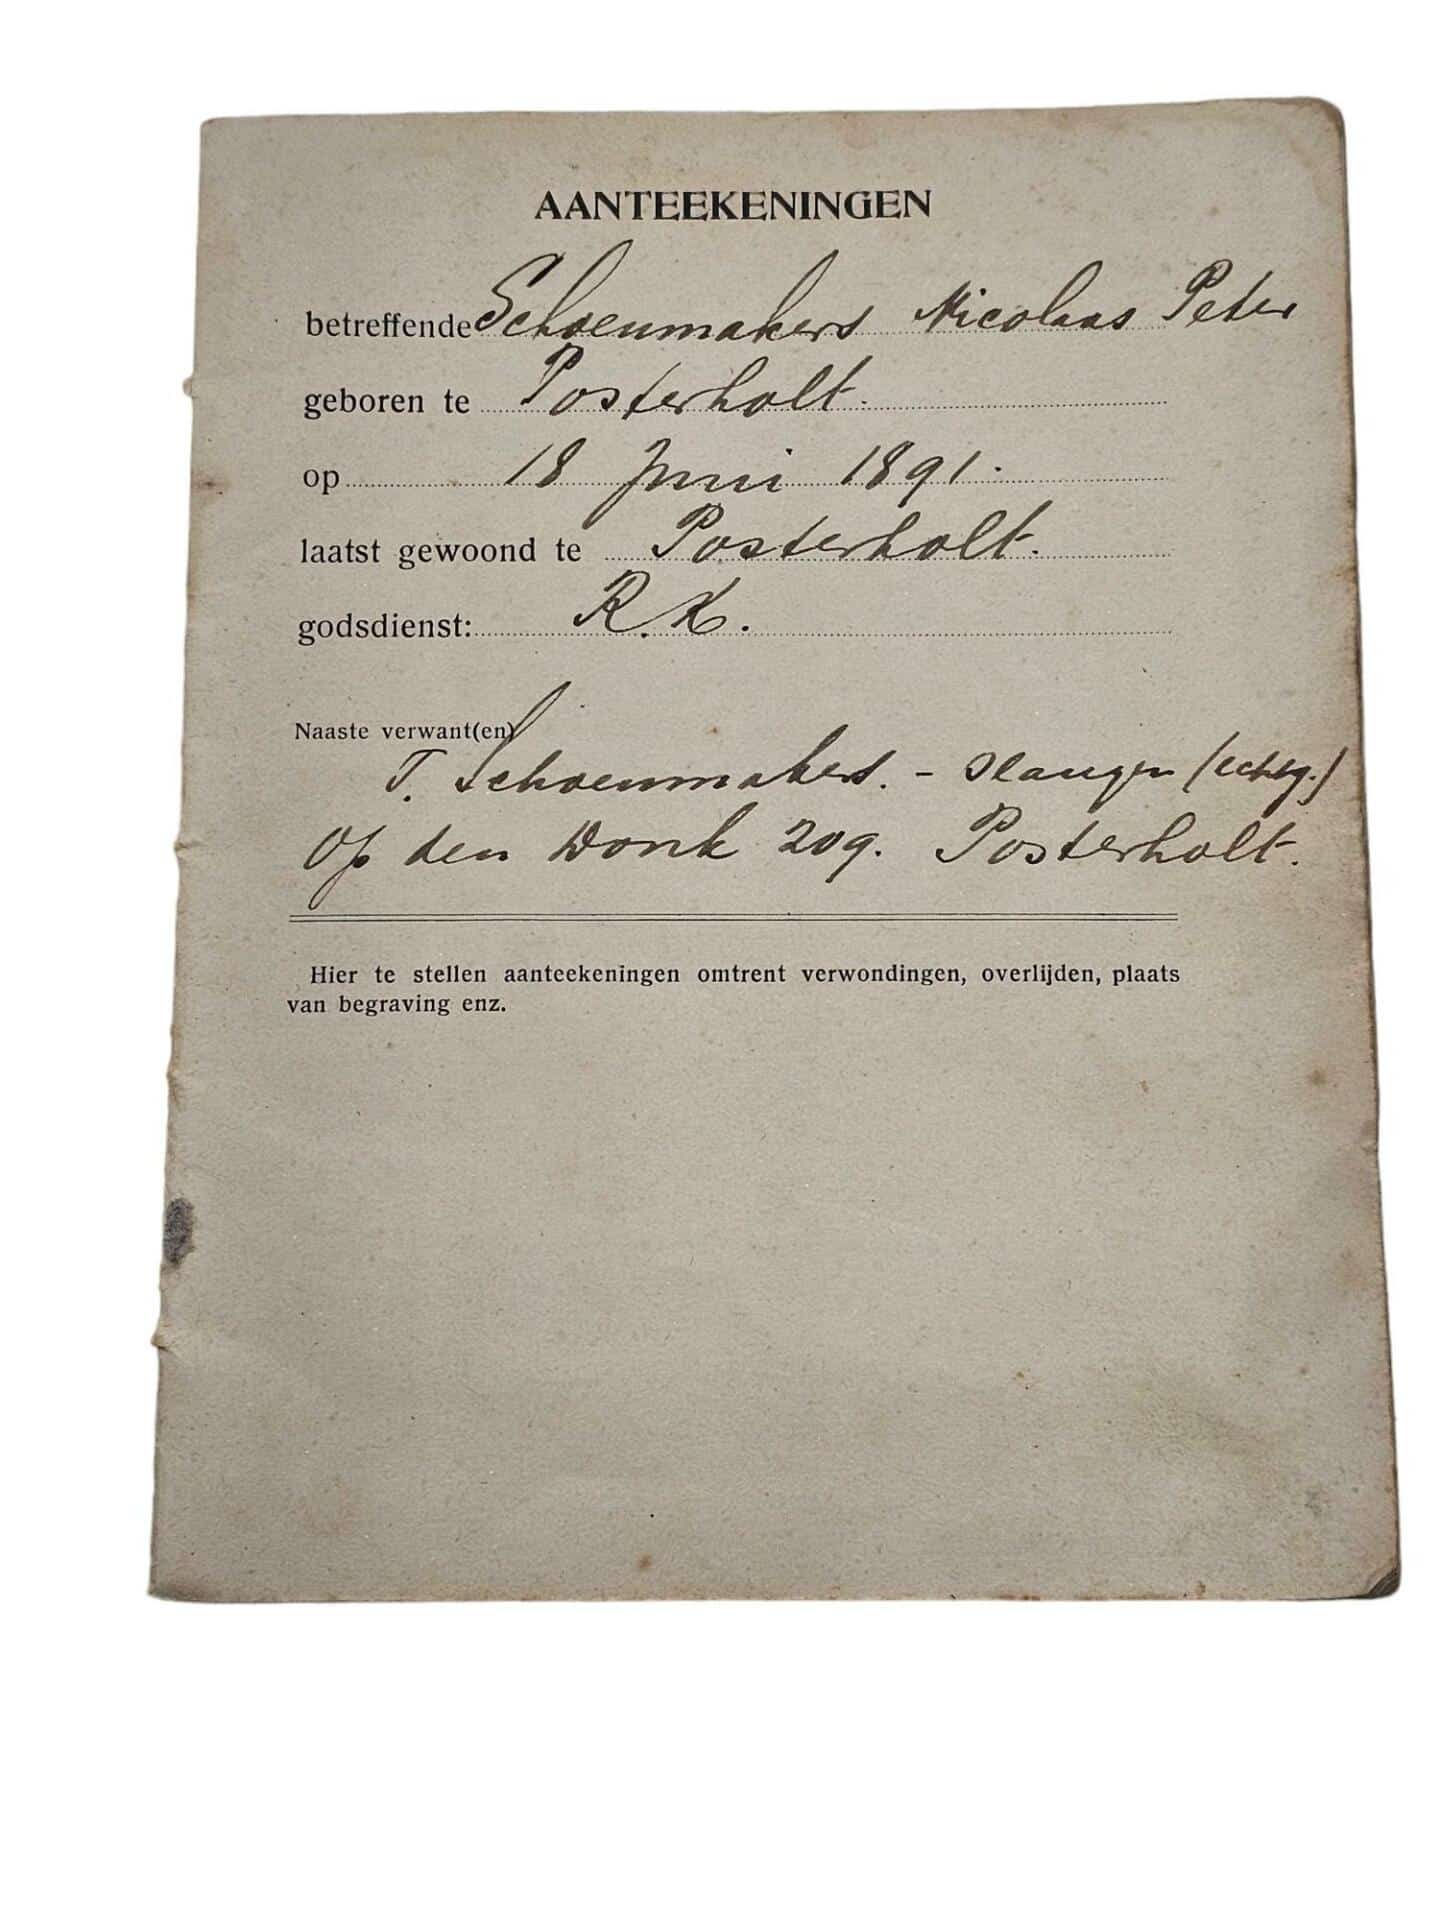 AANTEEKENINGEN
betreffende Schoenmakers Nicolaas Peter
geboren te Posterholt.
op 18 Juni 1891.
laatst gewoond te Posterholt.
godsdienst: R.K.
Naaste verwant(en)
T. Schoenmakers. - Slangen (echtg.)
Op den Donk 209. Posterholt.
Hier te stellen aanteekeningen omtrent verwondingen, overlijden, plaats
van begraving enz.